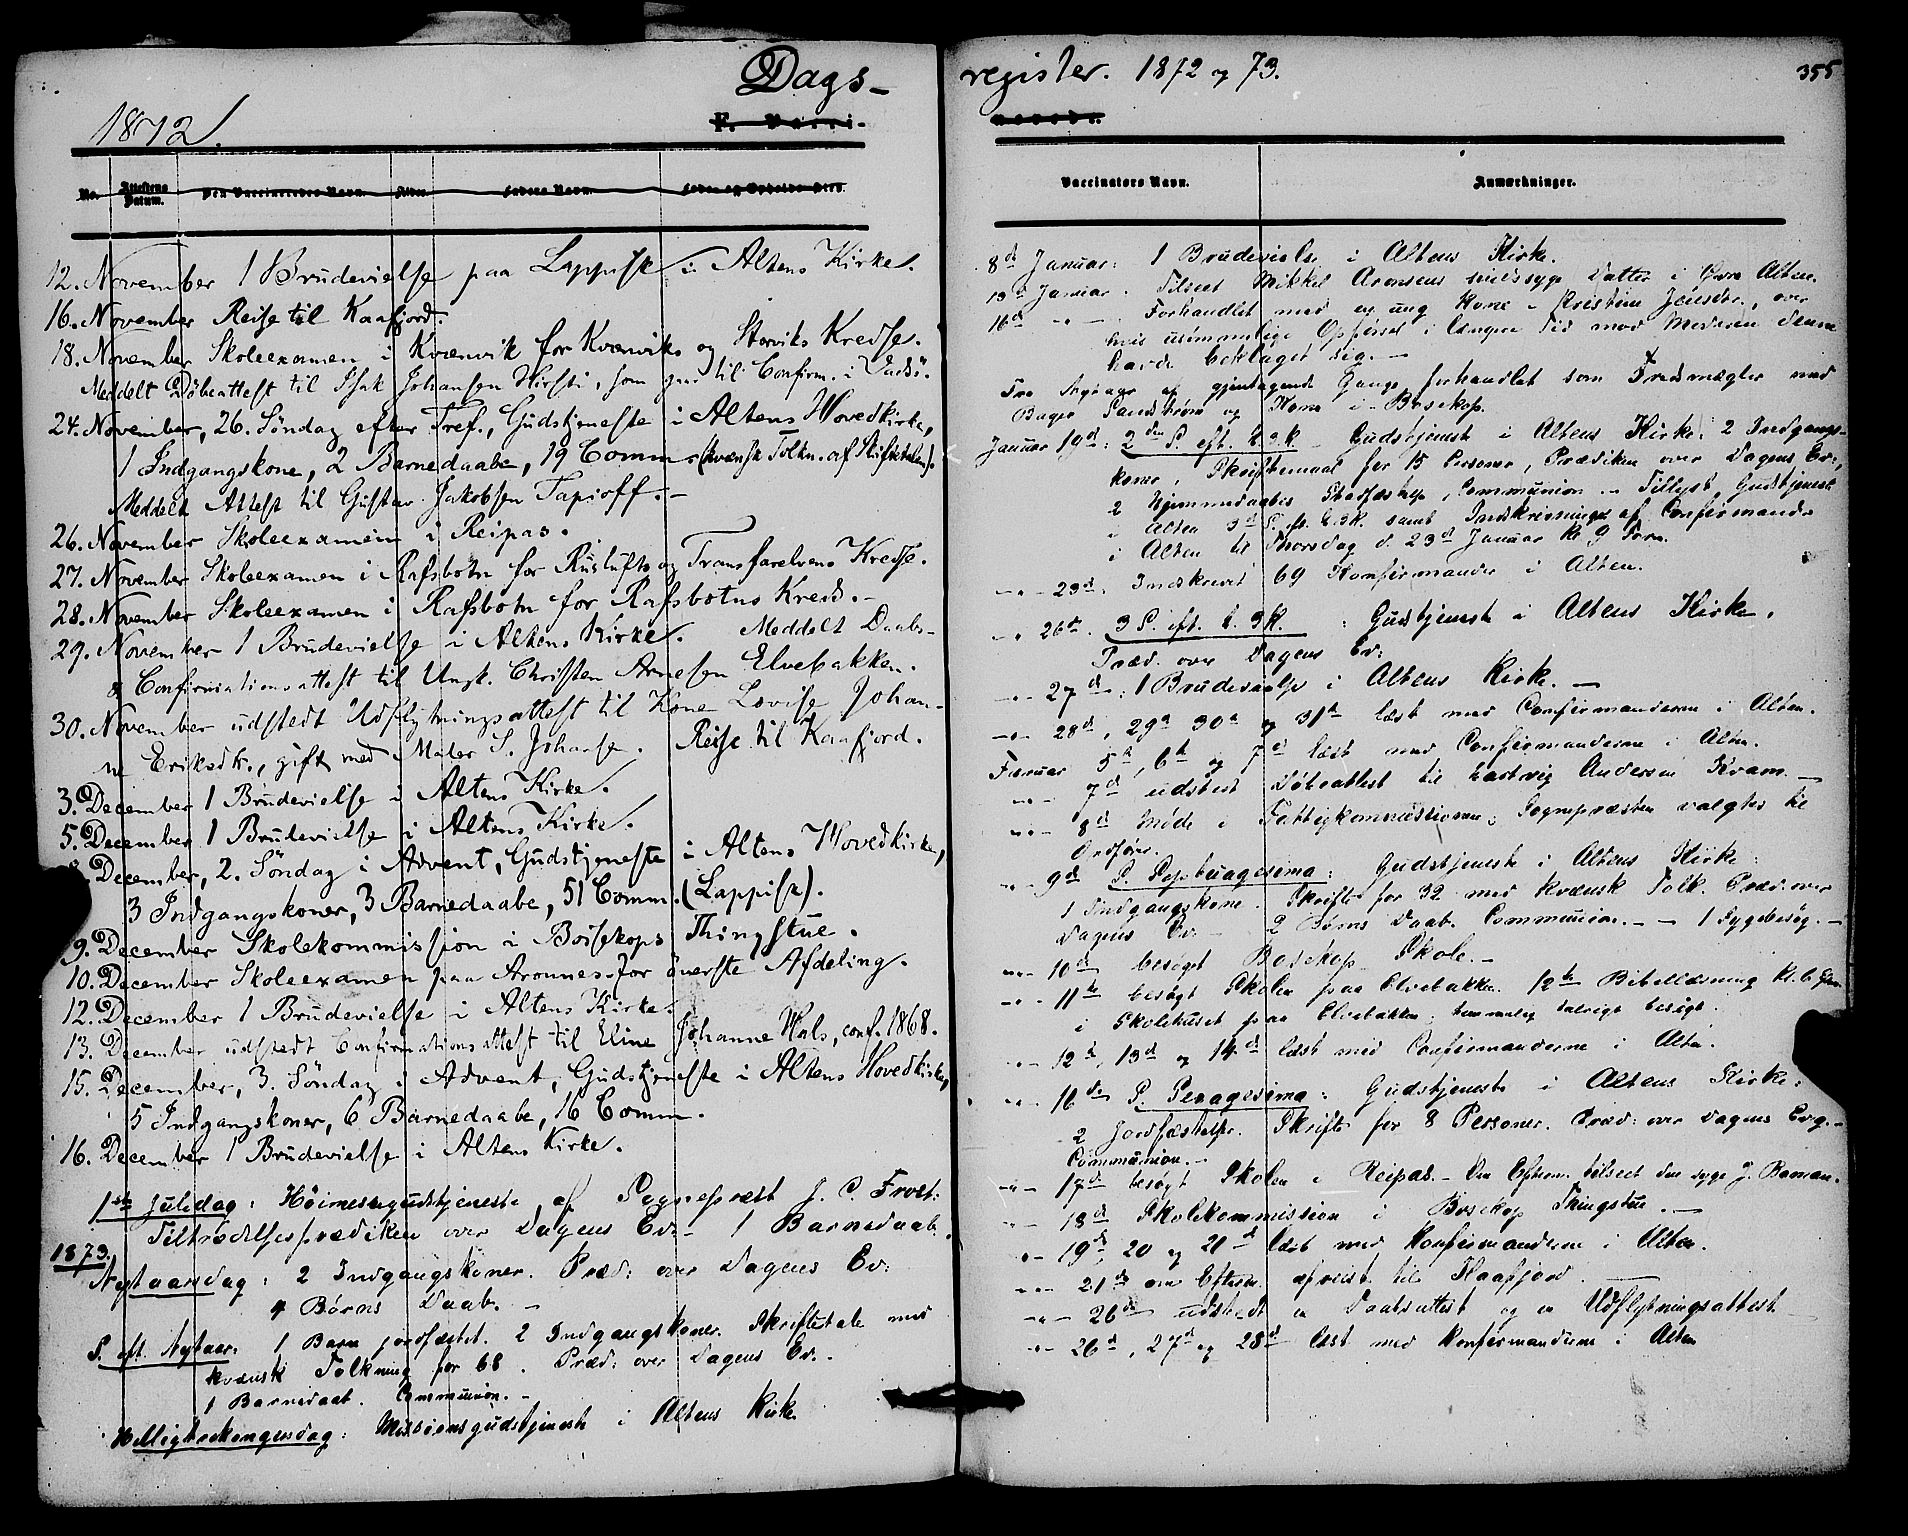 Dags-
1872.
F. Vacci-
No.
Attestens Datum.
Den Vaccineredes Navn.
Alder.
Faders Navn.
12. November 1 Brudevielse paa Lappisk i Altens Kirke.
16. November Reise til Kaafjord.
18. November Skoleexamen i Kvænvik for Kvænviks og Storviks Kredse.
Meddelt Döbeattest til Isak Johansen Hirsti, som gaar til Confirm. i Vadsö.
24. November, 26. Söndag efter Tref., Gudstjeneste i Altens Hovedkirke,
1 Indgangskone, 2 Barnedaabe, 19 Comm. (kvænsk Tolkn. af Skriftetalen).
Meddelt Attest til Gustav Jakobsen Tapioff. -
26. November Skoleexamen i Reipas.
27. November Skoleexamen i Rafsbotn for Ruslufts og Transfarelvens Kredse.
28. November Skoleexamen i Rafsbotn for Rafsbotns Kreds. -
29. November 1 Brudevielse i Altens Kirke. Meddelt Daabs-
& Confirmationsattest til Ungk. Christen Arnesen Elvebakken.
30. November udstedt Udflytningsattest til Kone Lovise Johan-
ne Eriksdtr., gift med Maler S. Johnsen. Reise til Kaafjord.
3. December 1 Brudevielse i Altens Kirke.
5. December 1 Brudevielse i Altens Kirke.
December, 2. Söndag i Advent, Gudstjeneste i Altens Hovedkirke,
3 Indgangskoner, 3 Barnedaabe, 51 Comm. (Lappisk).
9. December Skolekommission i Bossekops Thingstue.
10. December Skoleexamen paa Aronnes for överste Afdeling.
12. December 1 Brudevielse i Altens Kirke.
13. December udstedt Confirmationsattest til Eline Johanne Hals, conf. 1868.
15. December, 3. Söndag i Advent, Gudstjeneste i Altens Hovedkirke,
5 Indgangskoner, 6 Barnedaabe, 16 Comm.
16. December 1 Brudevielse i Altens Kirke.
1ste Juledag: Höimessegudstjeneste af Sognepræst J. C. Frost:
Tiltrædelsesprædiken over Dagens Ev. - 1 Barnedaab.
1873.
Nytaarsdag: 2 Indgangskoner. Præd: over Dagens Ev:
4 Börns Daab. -
S. eft. Nytaar. 1 Barn jordfæstet. 2 Indgangskoner. Skriftetale med
kvænsk Tolkning for 68. Præd: over Dagens Ev. -
1 Barnedaab. Communion. -
Helligtrekongersdag: Missionsgudstjeneste i Altens Kirke
register. 1872 og 73.
355
Vaccinators Navn.
Anmærkninger.
8de Januar: 1 Brudevielse i Altens Kirke.
Januar. Tilseet Mikkel Aronsens Datter i Övre Alten.
16de -"- Forhandlet med en ung Kone - Kristine, over
hvis usömmelige Opförsel i længere Tid mod Manden denne
havde beklaget sig. -
Fra Nytaar af gjentagende Gange forhandlet som Fredsmægler med
Bager Sandström og Kone i Bosekop.
Januar 19de: 2den S. eft. H.3K. Gudstjeneste i Altens Kirke: 2 Indgangs-
koner, Skriftemaal for 15 Personer, Prædiken over Dagens Ev:,
2 Hjemmedaabes Stadfæstelse, Communion. - Tillyst Gudstjeneste
i Alten 3de S. eft. H.3K. samt Indskrivning af Confirmander
i Alten til Thorsdag d. 23de Januar Kl 9 Form.
-"- 23de. Indskrevet 69 Konfirmander i Alten.
-"- 26de. 3 S. eft. H. 3K. : Gudstjeneste i Altens Kirke.
Præd. over Dagens Ev:
-"- 27de: 1 Brudevielse i Altens Kirke. -
-"- 28de, 29de 30te og 31te læst med Confirmanderne i Alten.
Februar 5te, 6te og 7de læst med Confirmanderne i Alten.
-"- 7de udstedt Döbeattest til Hartvig Andersen Kvam. -
-"- 8de Möde i Fattigkommissionen; Sognepræsten valgtes til
Ordförer.
-"- 9de S. Septuagesima: Gudstjeneste i Altens Kirke:
1 Indgangskone. Skrifte for 32 med kvænsk Tolk. Præd. over
Dagens Ev. - 2 Börns Daab. Communion. - - 1 Sygebesög. -
-"- 10de besögt Bosekop Skole. -
-"- 11te besögt Skolen paa Elvebakken. 12te Bibellæsning Kl. 6 Efterm.
i Skolehuset paa Elvebakken; temmelig talrigt besögt.
-"- 12te, 13de og 14de læst med Confirmanderne i Alten.
-"- 16de S. Sexagesima: Gudstjeneste i Altens Kirke:
2 Jordfæstelser. Skrifte for 8 Personer. Præd: over Dagens Evg. -
Communion. -
-"- 17de besögt Skolen i Reipas. - Om Efterm. tilseet den syge J. Baman.
-"- 18de Skolekommission i Bosekop Thingstue. -
-"- 19de, 20 og 21de læst med Konfirmanderne i Alten.
-"- 21de om Efterm. afreist til Kaafjord.
-"- 26de udstedt en Daabsattest og en Udflytningsattest
-"- 26de, 27de og 28de læst med Konfirmanderne i Alten